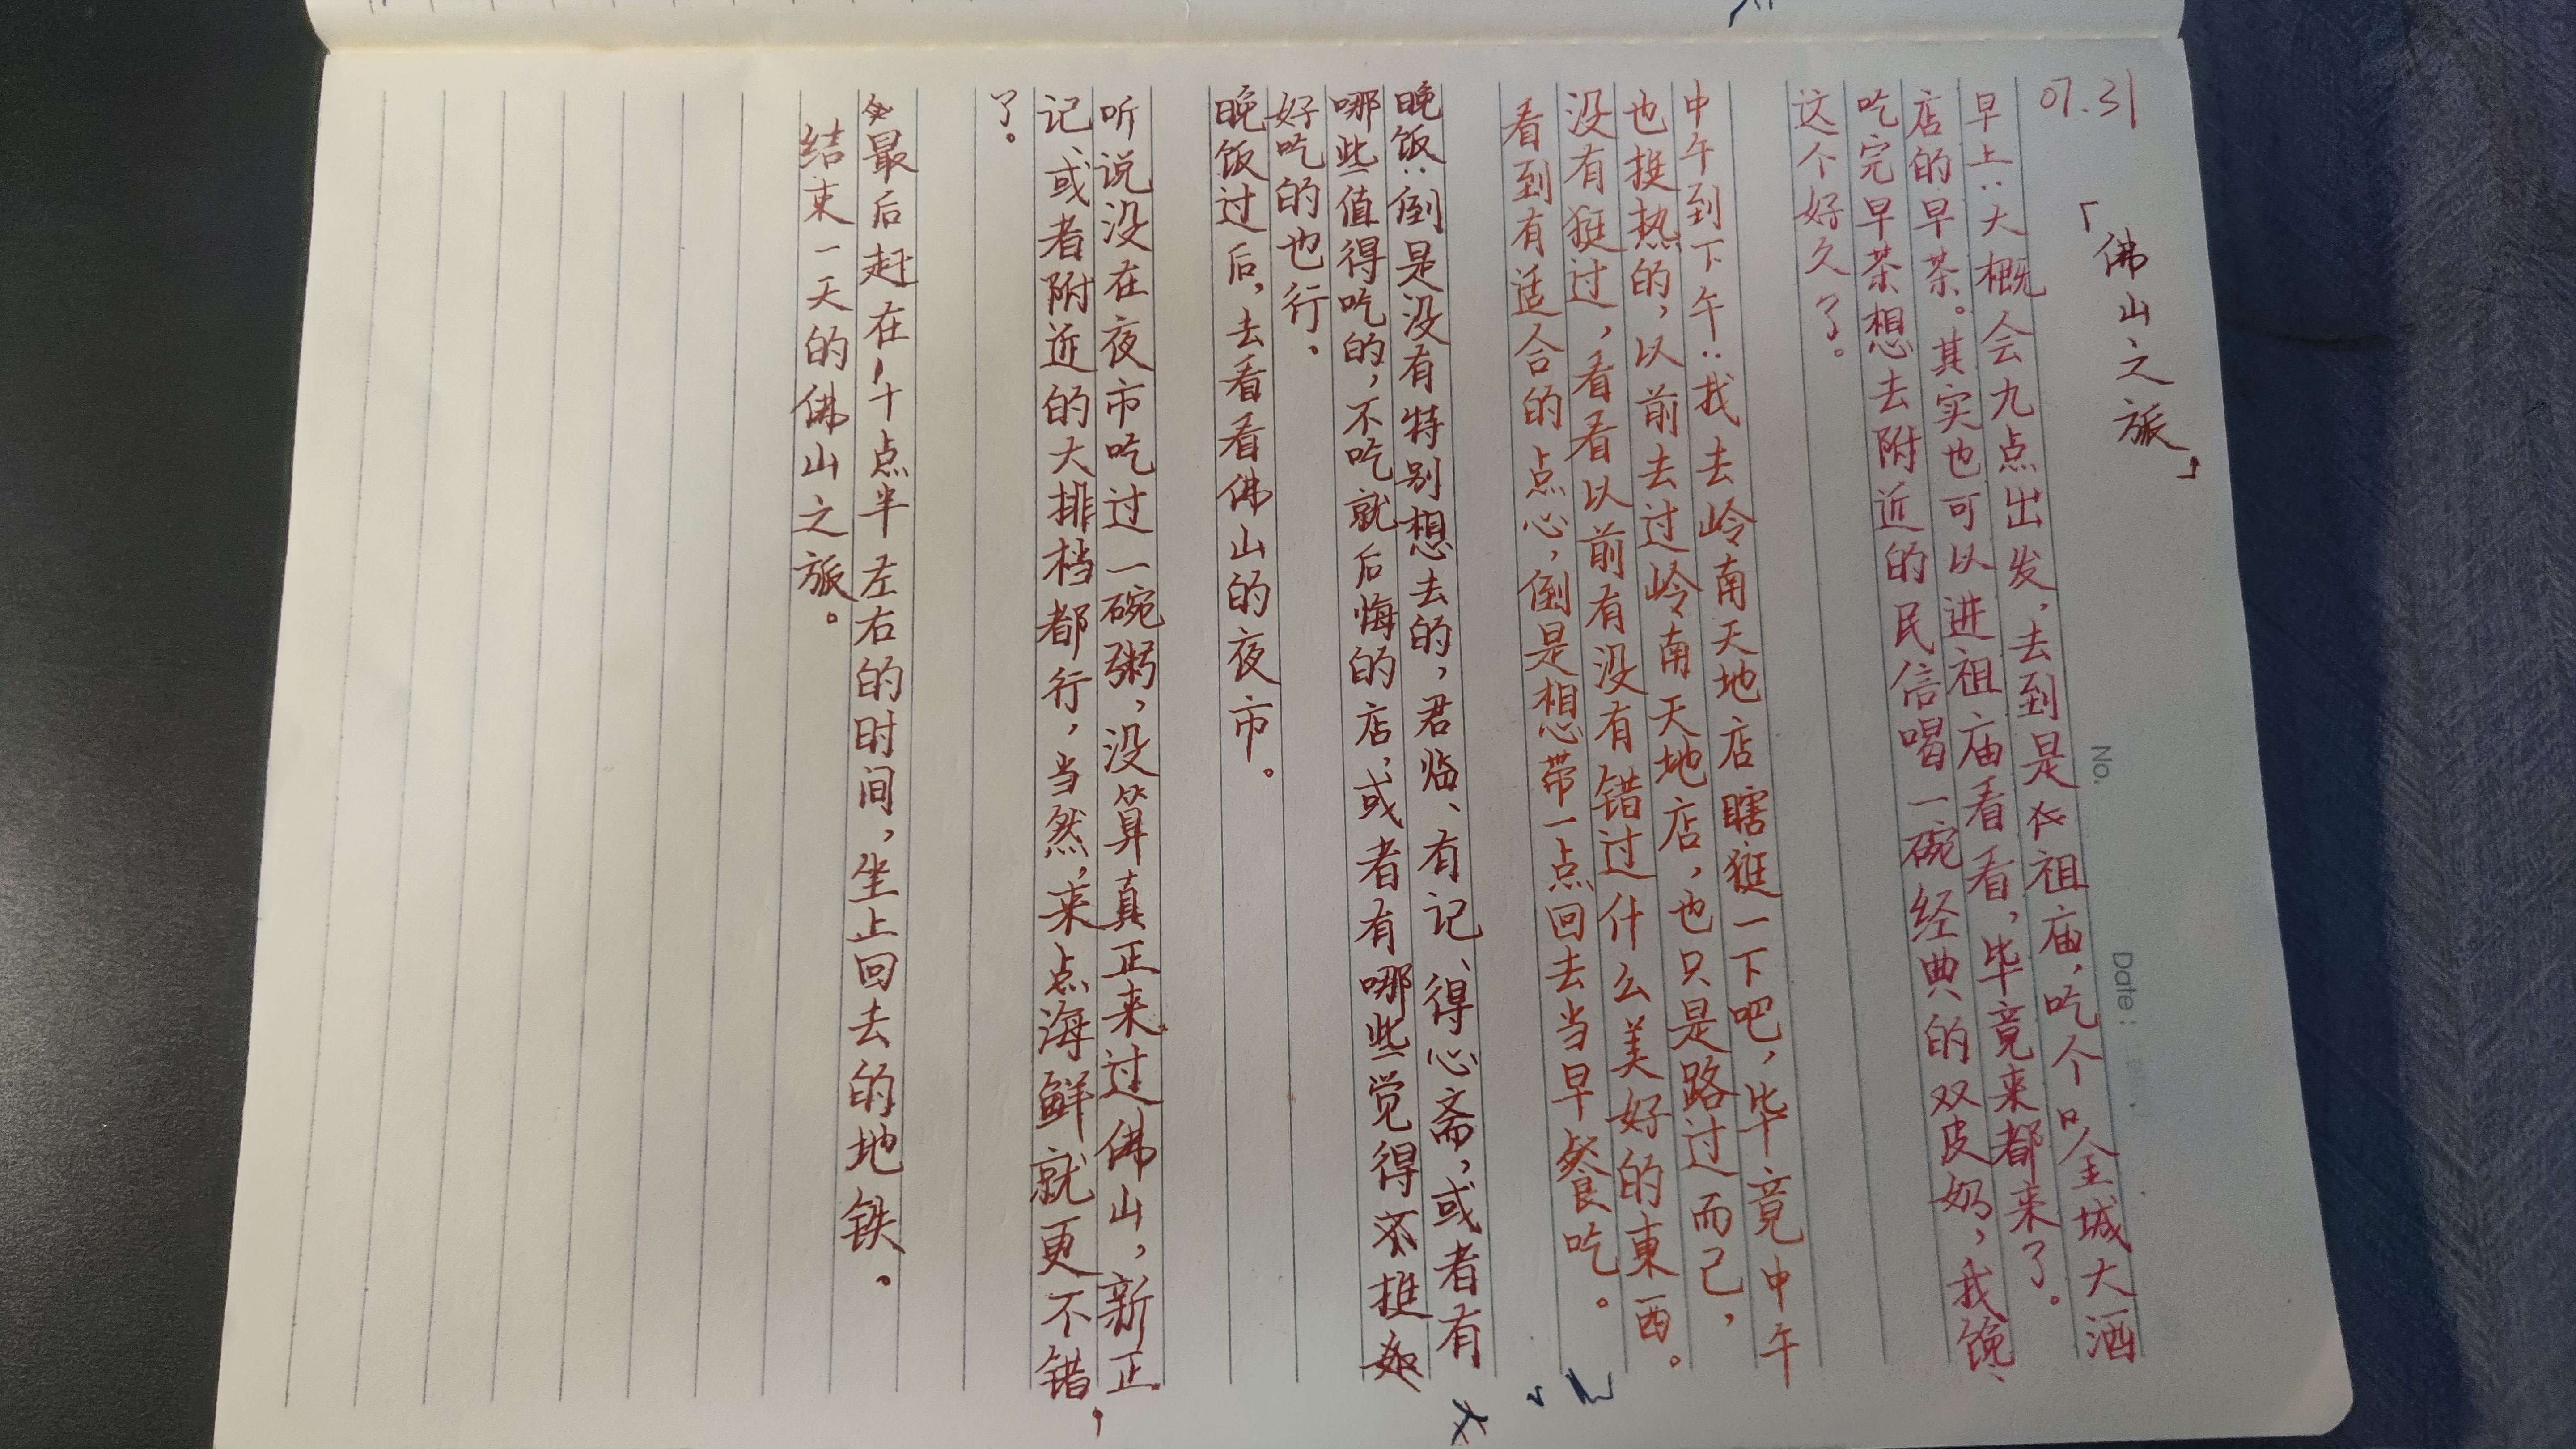 07.31
「佛山之旅」
早上：大概会九点出发，去到是祖庙，吃个金城大酒
店的早茶。其实也可以进祖庙看看，毕竟来都来了。
吃完早茶想去附近的民信喝一碗经典的双皮奶，我馋
这个好久了。
中午到下午：找去岭南天地店瞎逛一下吧，毕竟中午
也挺热的，以前去过岭南天地店，也只是路过而已，
没有逛过，看看以前有没有错过什么美好的東西。
看到有适合的点心，倒是想带一点回去当早餐吃。
晚饭：倒是没有特别想去的，君临、有记、得心斋，或者有
哪些值得吃的，不吃就后悔的店，或者有哪些觉得不
好吃的也行。
晚饭过后，去看看佛山的夜市。
听说没在夜市吃过一碗粥，没算真正来过佛山，新正
记、或者附近的大排档都行，当然，来点海鲜就更不错，
了。
最后赶在十点半左右的时间，坐上回去的地铁。
结束一天的佛山之旅。
No.
Date: